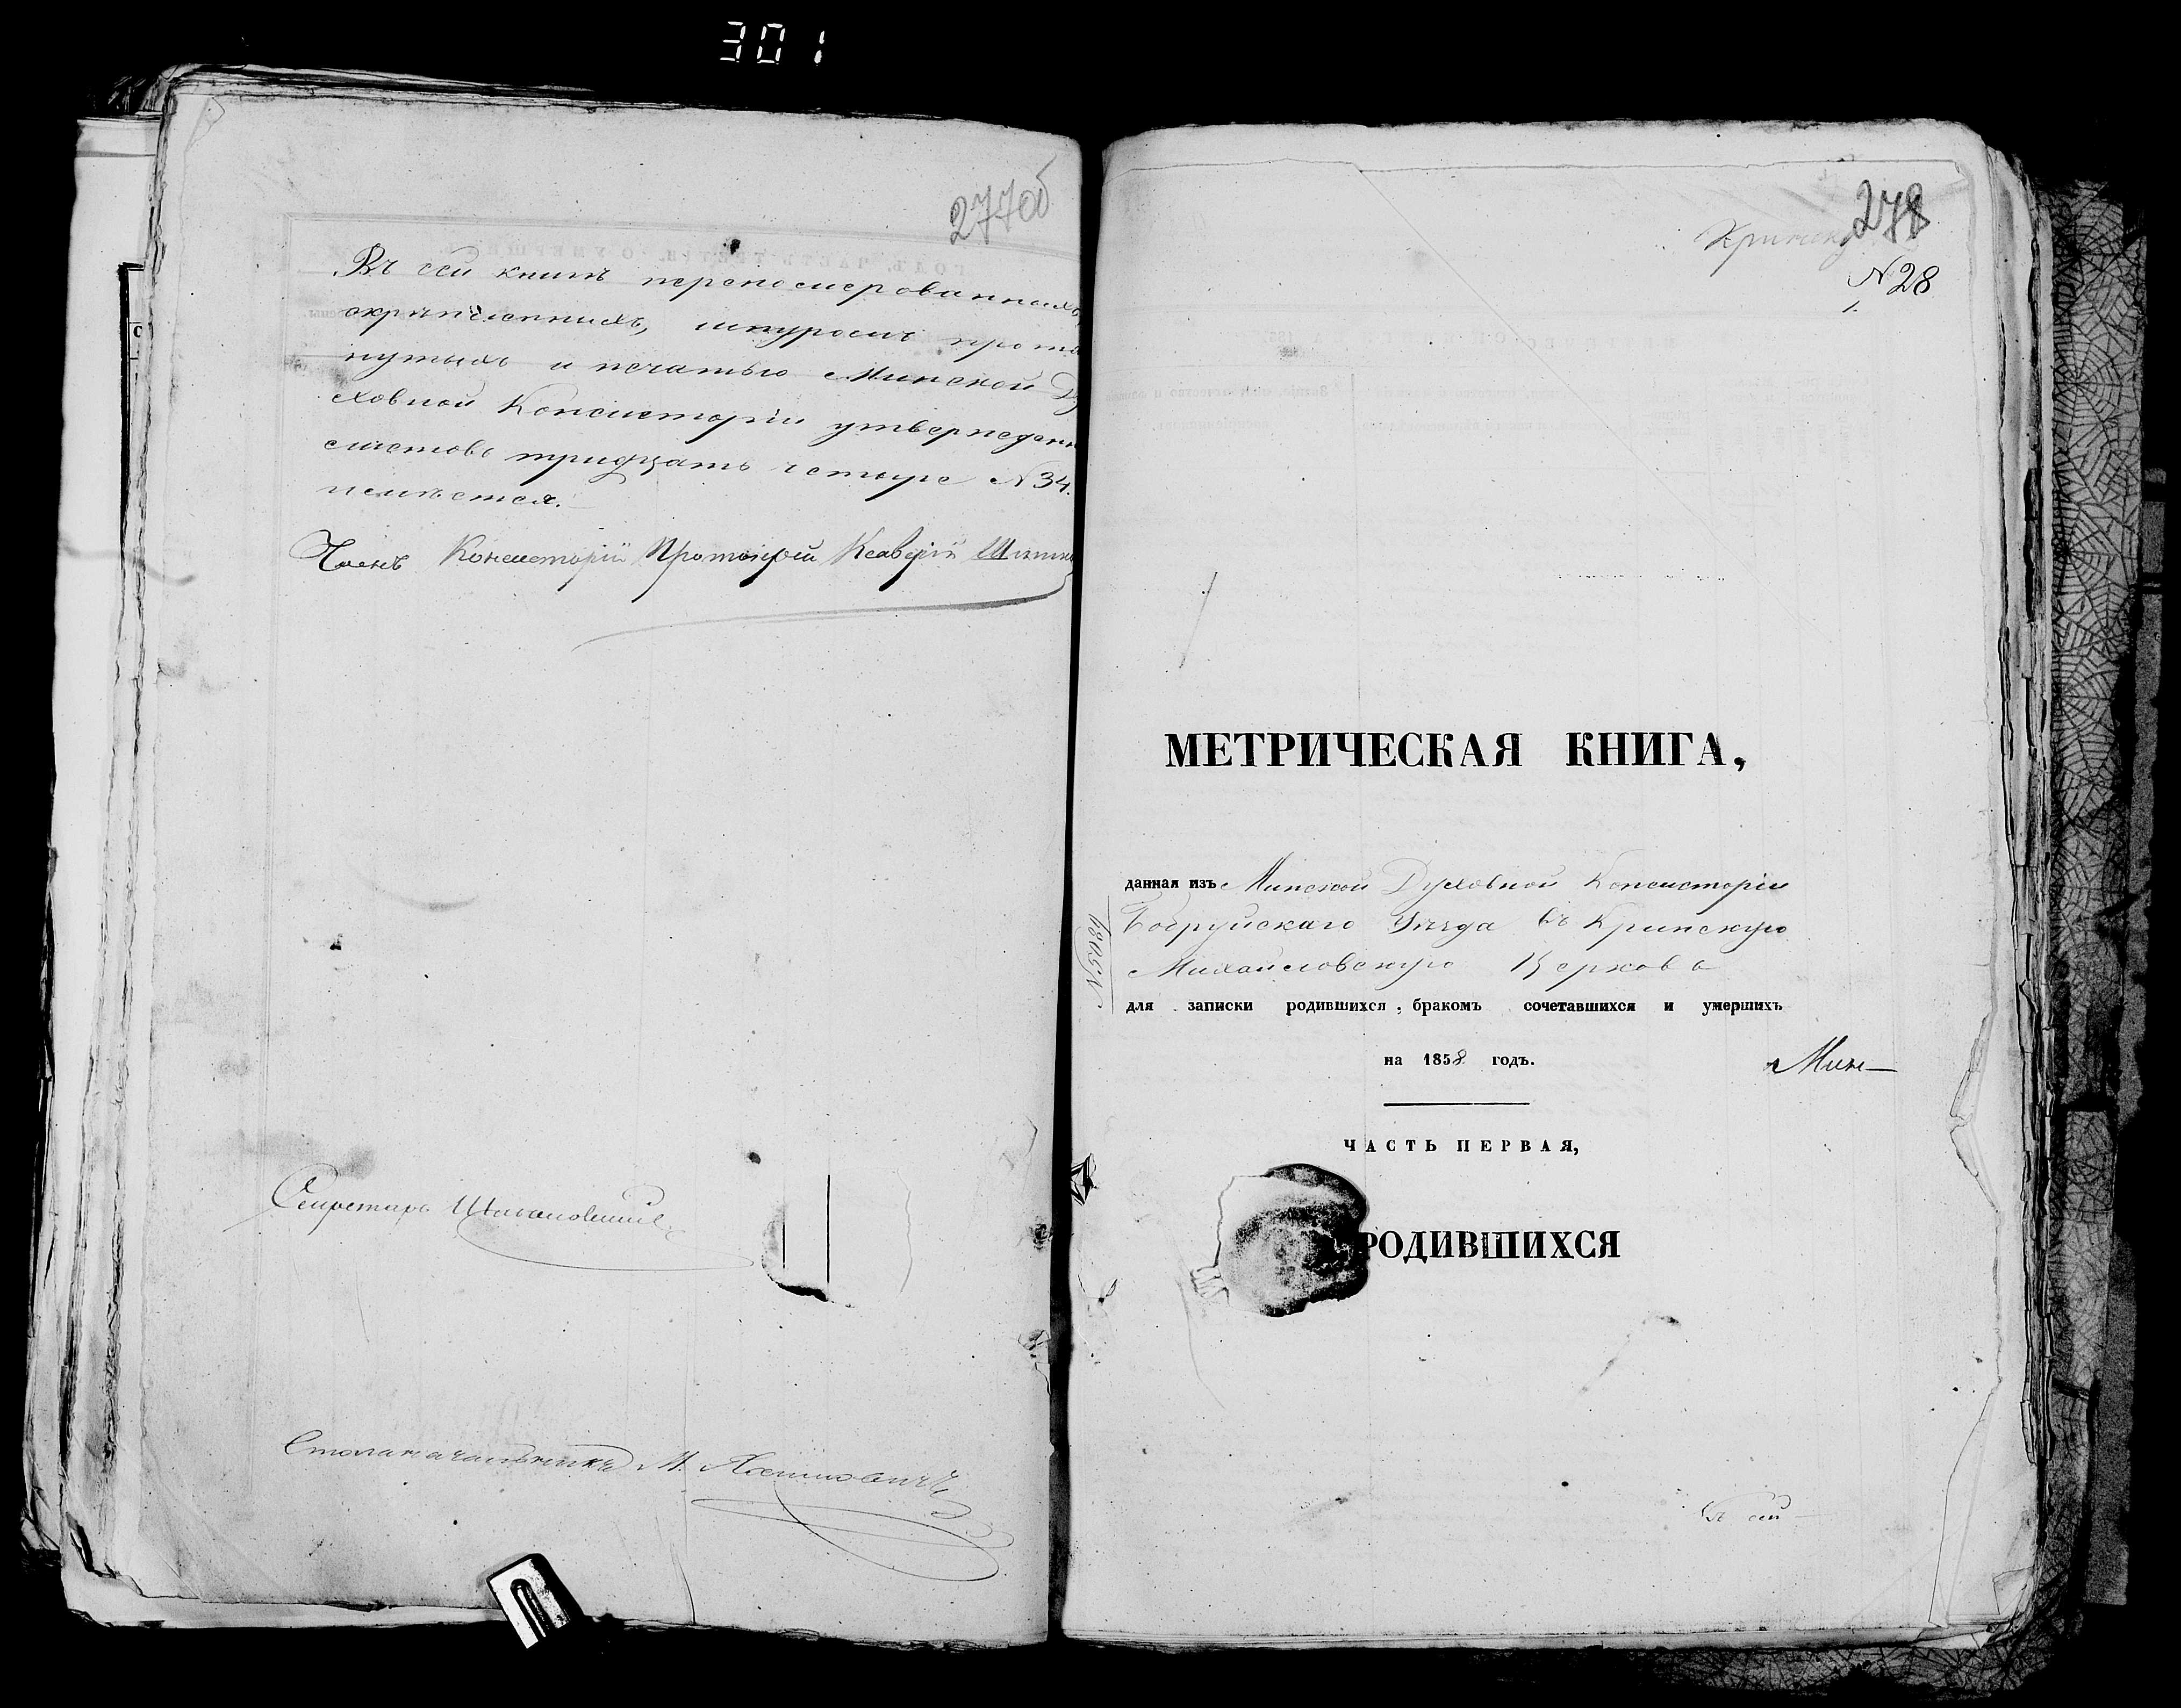 301
277об
Въ сей книгѣ перенумерованныхъ,
скрѣпленныхъ, шнуромъ протя
нутыхъ и печатью Минской Ду
ховной Консисторіи утвержденн
листовъ тридцать четыре №34.
имѣется.
Членъ Консисторіи Протоіерей Ксаверій
Секретарь
Столоначальникъ М.
278
№28
1.
МЕТРИЧЕСКАЯ КНИГА,
данная изъ Минской Духовной Консисторіи
Бобруйскаго Уѣзда въ Кринскую
Михайловскую Церковь
для записки родившихся, бракомъ сочетавшихся и умершихъ
на 1858 годъ.
Мин—
ЧАСТЬ ПЕРВАЯ,
РОДИВШИХСЯ
Въ сей—
№5084